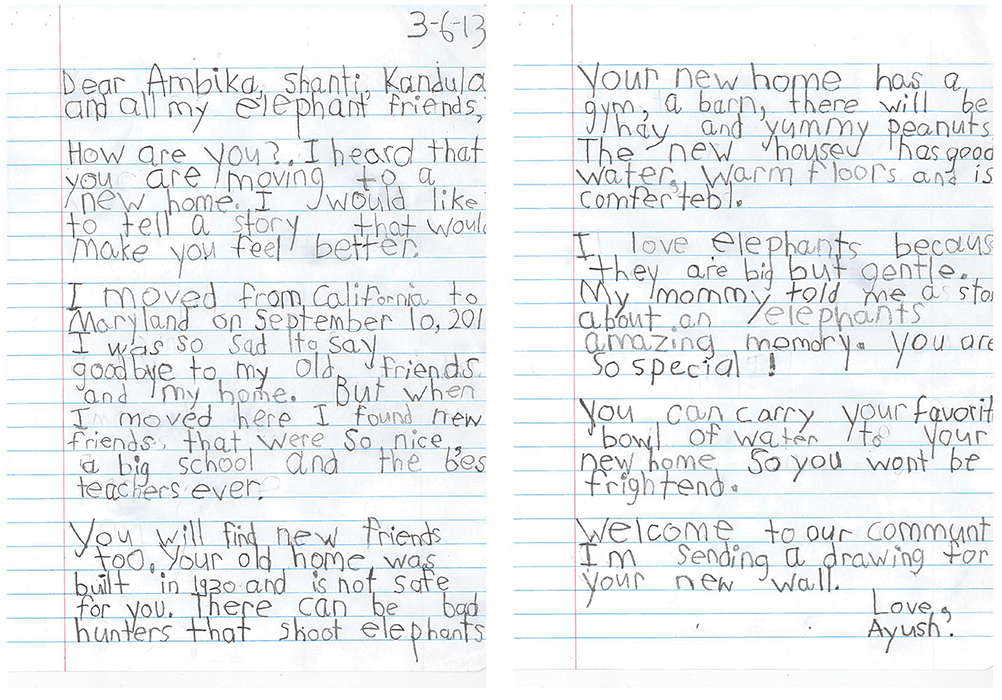 3-6-13
Dear Ambika, Shanti, Kandula
and all my elephant friends,
How are you?. I heard that
you are moving to a
new home. I would like
to tell a story that woul
make you feel better.
I moved from California to
Maryland on September 10, 201
I was so sad to say
goodbye to my old friends
and my home. But when
I moved here I found new
friends that were so nice,
a big school and the bes
teachers ever.
You will find new friends
too. Your old home was
built in 1930 and is not safe
for you. There can be bad
hunters that shoot elephants
Your new home has a
gym, a barn, there will be
hay and yummy peanuts
The new housed has good
water, warm floors and is
comfertebl.
I love elephants becaus
they are big but gentle.
My mommy told me a sto
about an elephants
amazing memory. You are
so special !
You can carry your favorit
bowl of water to your
new home so you wont be
frightend.
Welcome to our communt
I'm sending a drawing for
your new wall.
Love,
Ayush.